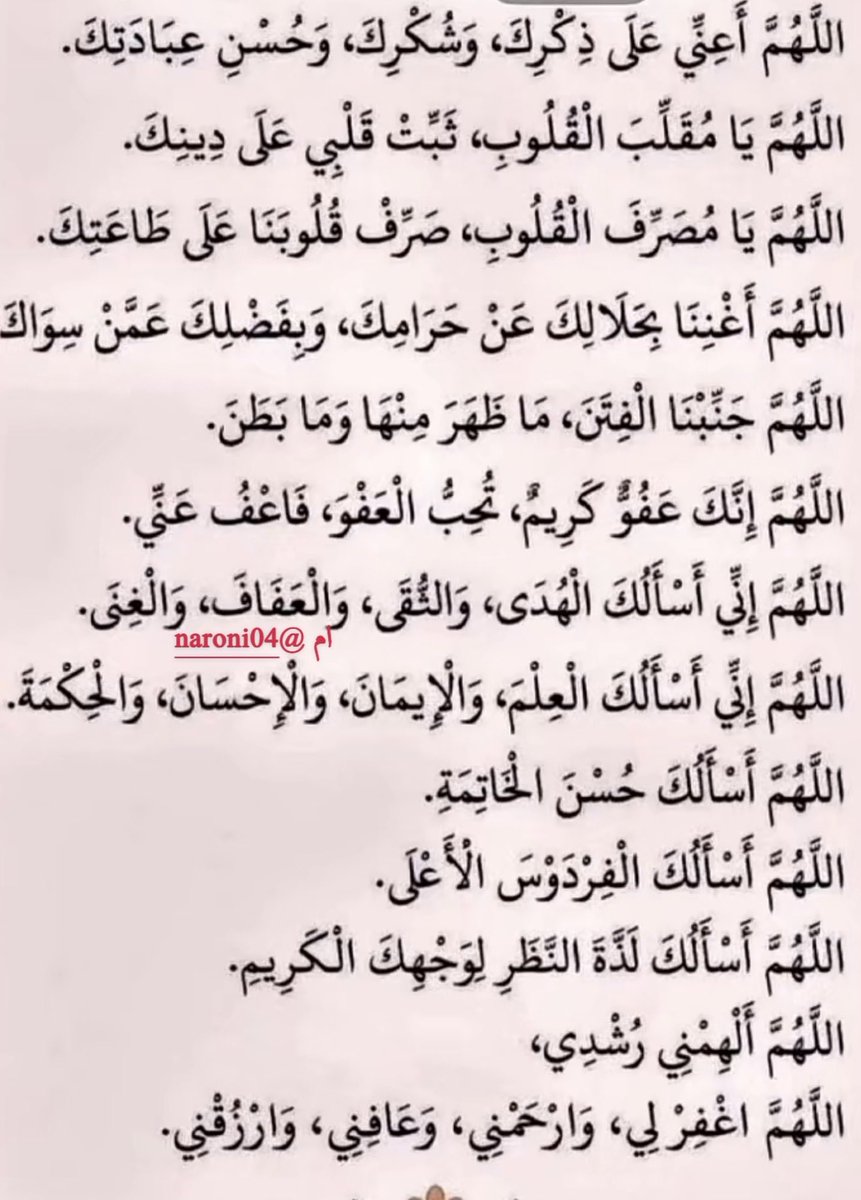 اللَّهُمَّ أَعِنِّي عَلَى ذِكْرِكَ، وَشُكْرِكَ، وَحُسْنِ عِبَادَتِكَ.
اللَّهُمَّ يَا مُقَلِّبَ الْقُلُوبِ، ثَبِّتْ قَلْبِي عَلَى دِينِكَ.
اللَّهُمَّ يَا مُصَرِّفَ الْقُلُوبِ، صَرِّفْ قُلُوبَنَا عَلَى طَاعَتِكَ.
اللَّهُمَّ أَغْنِنَا بِحَلَالِكَ عَنْ حَرَامِكَ، وَبِفَضْلِكَ عَمَّنْ سِوَاكَ
اللَّهُمَّ جَنِّبْنَا الْفِتَنَ، مَا ظَهَرَ مِنْهَا وَمَا بَطَنَ.
اللَّهُمَّ إِنَّكَ عَفُوٌّ كَرِيمٌ، تُحِبُّ الْعَفْوَ، فَاعْفُ عَنِّي.
اللَّهُمَّ إِنِّي أَسْأَلُكَ الْهُدَى، وَالتُّقَى، وَالْعَفَافَ، وَالْغِنَى.
ام @naroni04
اللَّهُمَّ إِنِّي أَسْأَلُكَ الْعِلْمَ، وَالْإِيمَانَ، وَالْإِحْسَانَ، وَالْحِكْمَةَ.
اللَّهُمَّ أَسْأَلُكَ حُسْنَ الْخَاتِمَةِ.
اللَّهُمَّ أَسْأَلُكَ الْفِرْدَوْسَ الْأَعْلَى.
اللَّهُمَّ أَسْأَلُكَ لَذَّةَ النَّظَرِ لِوَجْهِكَ الْكَرِيمِ.
اللَّهُمَّ أَلْهِمْنِي رُشْدِي،
اللَّهُمَّ اغْفِرْ لِي، وَارْحَمْنِي، وَعَافِنِي، وَارْزُقْنِي.